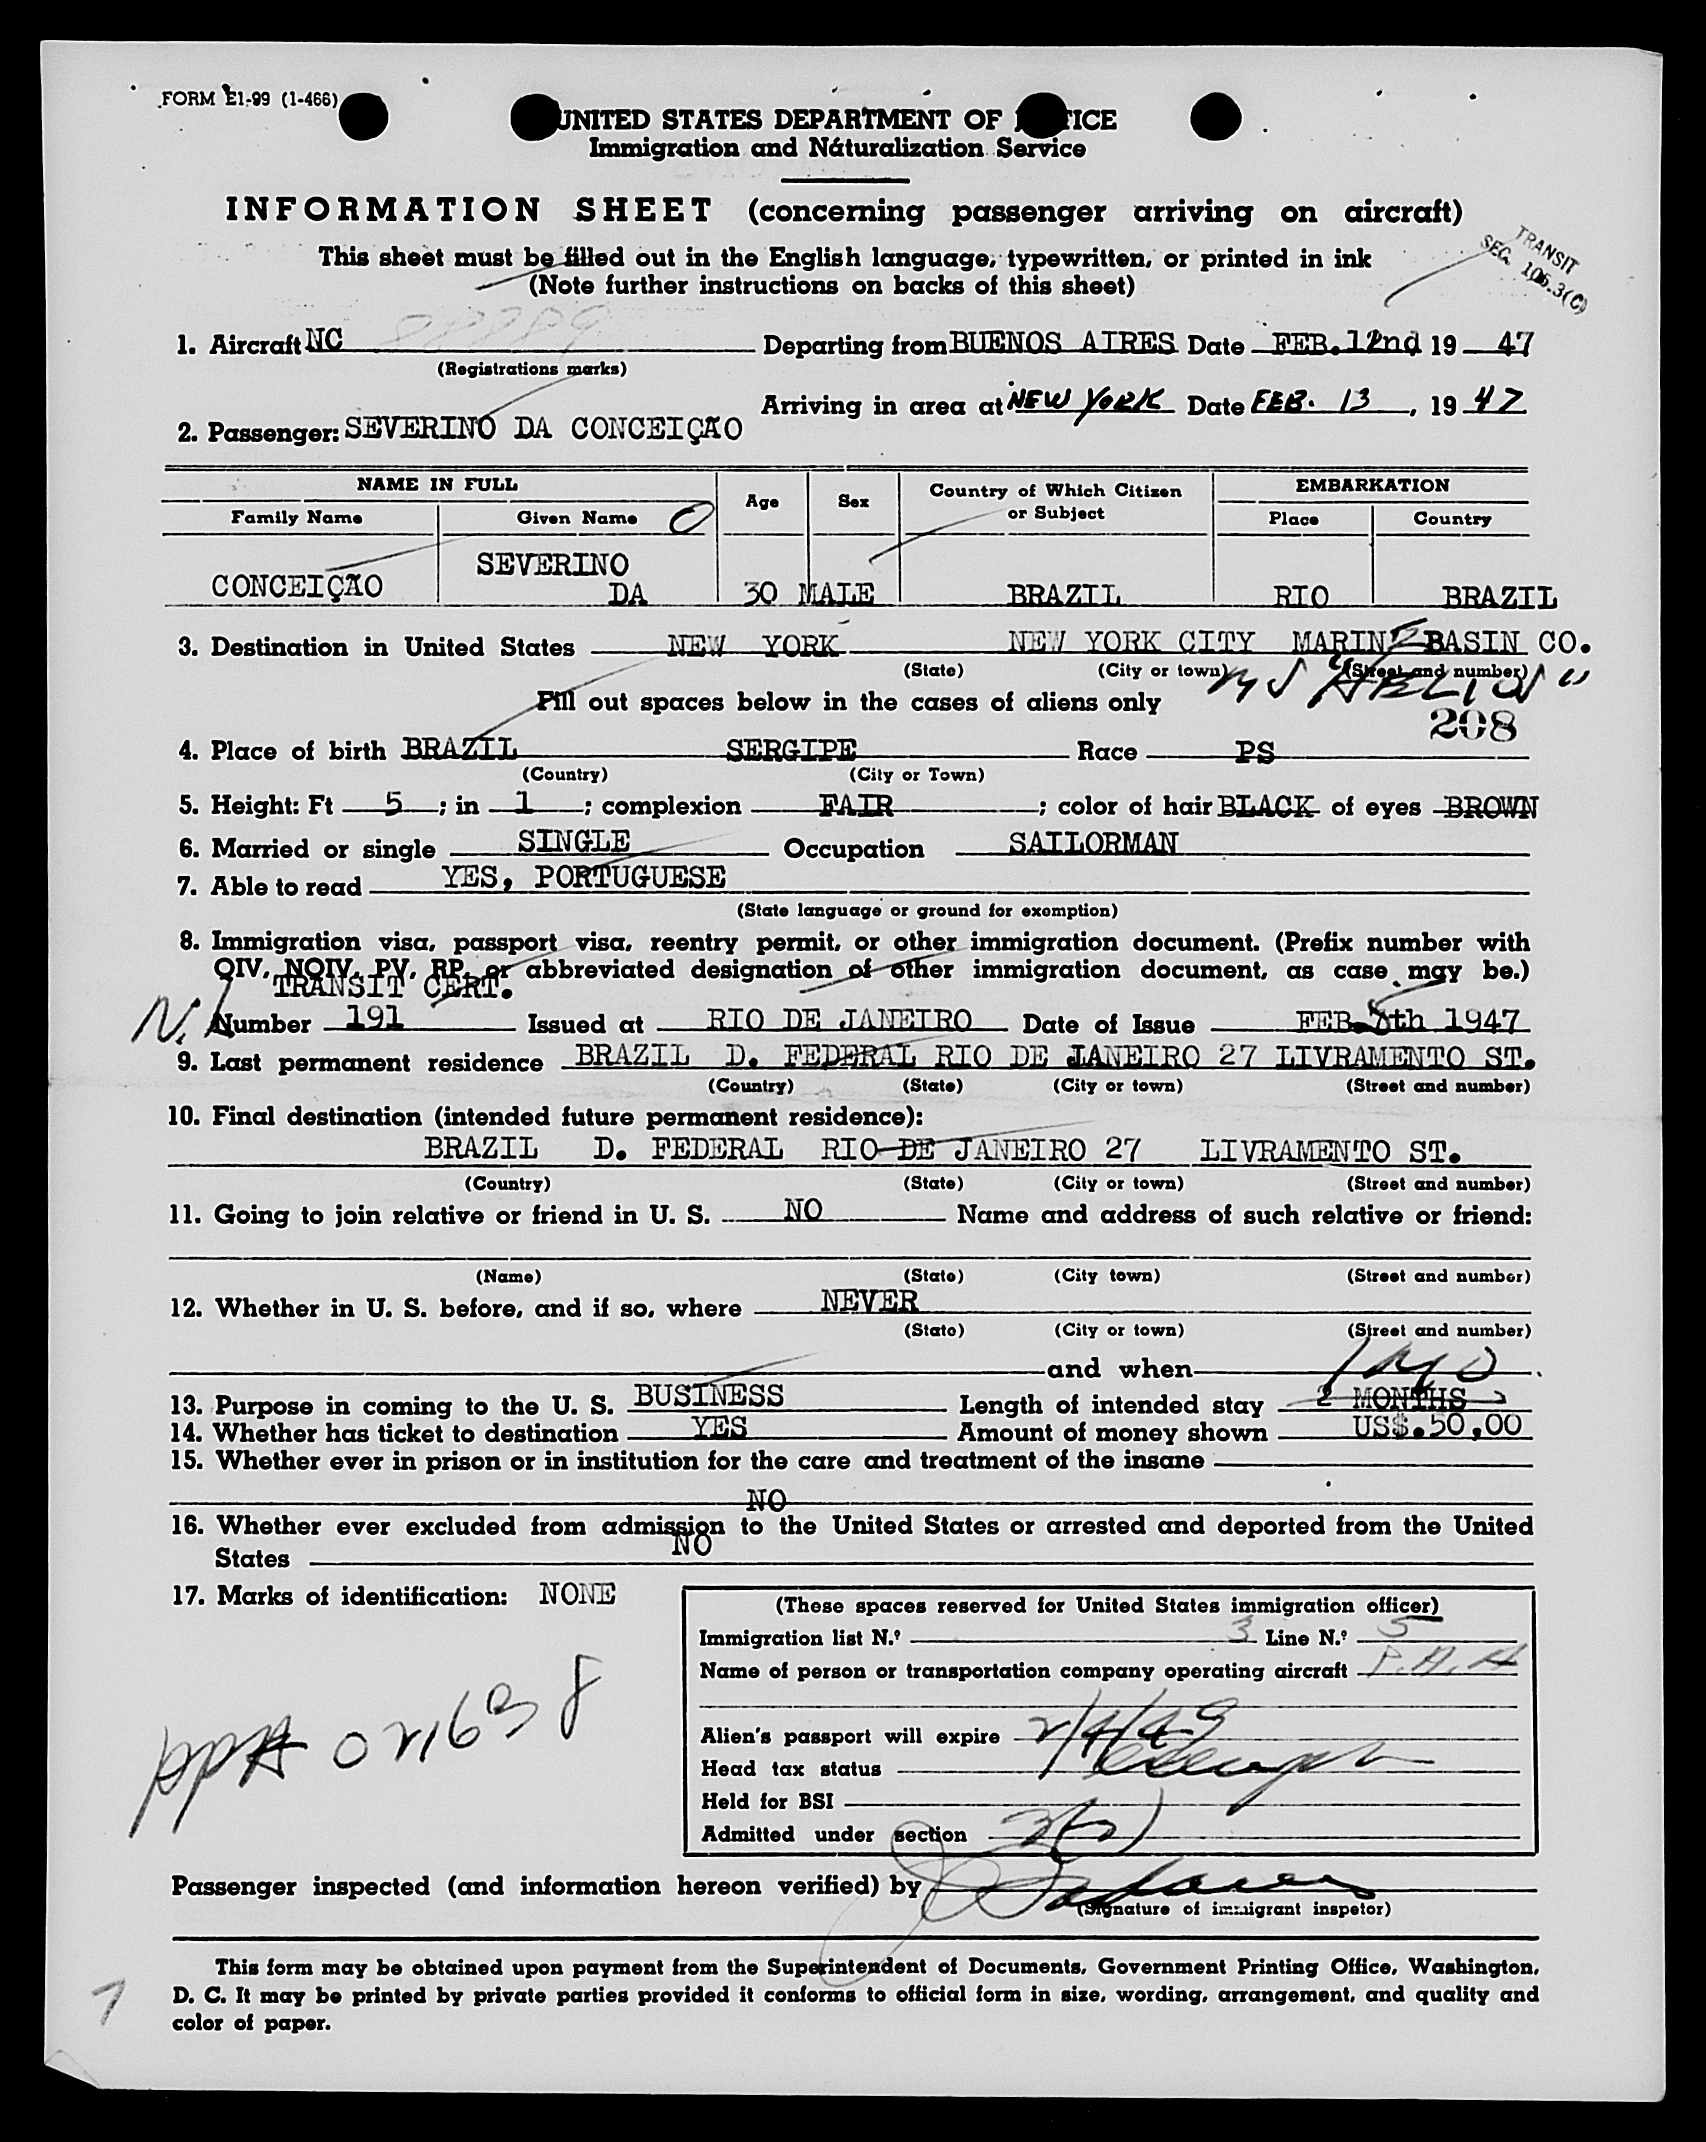 FORM E1-99 (1-466)
UNITED STATES DEPARTMENT OF TICE
Immigration and Naturalization Service
INFORMATION SHEET (concerning passenger arriving on aircraft)
This sheet must be filled out in the English language, typewritten, or printed in ink
(Note further instructions on backs of this sheet)
TRANSIT
SEC. 106.3(C)
1. Aircraft NC Departing from BUENOS AIRES Date FEB. 12nd 19 47
(Registrations marks)
Arriving in area at NEW YORK Date FEB. 13, 19 47
2. Passenger: SEVERINO DA CONCEIÇÃO
NAME IN FULL Age Sex Country of Which Citizen or Subject EMBARKATION
Family Name Given Name Place Country
CONCEIÇÃO SEVERINO DA 30 MALE BRAZIL RIO BRAZIL
3. Destination in United States NEW YORK NEW YORK CITY MARINE BASIN CO.
(State) (City or town) (Street and number)
Fill out spaces below in the cases of aliens only
208
4. Place of birth BRAZIL SERGIPE Race PS
(Country) (City or Town)
5. Height: Ft 5; in 1; complexion FAIR; color of hair BLACK of eyes BROWN
6. Married or single SINGLE Occupation SAILORMAN
7. Able to read YES, PORTUGUESE
(State language or ground for exemption)
8. Immigration visa, passport visa, reentry permit, or other immigration document. (Prefix number with
QIV, NQIV, PV, RP, or abbreviated designation of other immigration document, as case may be.)
TRANSIT CERT.
Number 191 Issued at RIO DE JANEIRO Date of Issue FEB. 8th 1947
9. Last permanent residence BRAZIL D. FEDERAL RIO DE JANEIRO 27 LIVRAMENTO ST.
(Country) (State) (City or town) (Street and number)
10. Final destination (intended future permanent residence):
BRAZIL D. FEDERAL RIO DE JANEIRO 27 LIVRAMENTO ST.
(Country) (State) (City or town) (Street and number)
11. Going to join relative or friend in U. S. NO Name and address of such relative or friend:
(Name) (State) (City town) (Street and number)
12. Whether in U. S. before, and if so, where NEVER
(State) (City or town) (Street and number)
and when
1 MO
13. Purpose in coming to the U. S. BUSINESS Length of intended stay 2 MONTHS
14. Whether has ticket to destination YES Amount of money shown US$.50,00
15. Whether ever in prison or in institution for the care and treatment of the insane
NO
16. Whether ever excluded from admission to the United States or arrested and deported from the United
States NO
17. Marks of identification: NONE
(These spaces reserved for United States immigration officer)
Immigration list N.º 3 Line N.º 5
Name of person or transportation company operating aircraft
Alien's passport will expire 2/4/49
Head tax status
Held for BSI
Admitted under section 3(2)
PPA 021638
Passenger inspected (and information hereon verified) by
(Signature of immigrant inspetor)
This form may be obtained upon payment from the Superintendent of Documents, Government Printing Office, Washington,
D. C. It may be printed by private parties provided it conforms to official form in size, wording, arrangement, and quality and
color of paper.
7